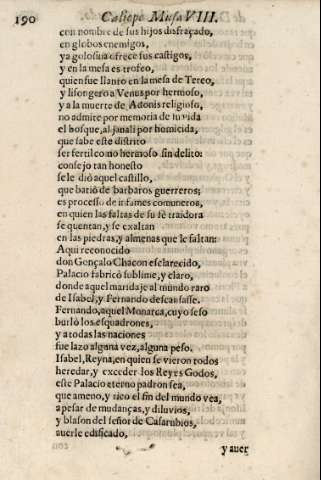 190 Caliope Musa VIII.
con nombre de sus hijos disfraçado,
en globos enemigos,
ya golosina ofrece sus castigos,
y en la mesa es trofeo,
quien fue llanto en la mesa de Tereo,
y lisongero a Venus por hermoso,
y a la muerte de Adonis religioso,
no admite por memoria de su vida
el bosque, al jauali por homicida,
que sabe este distrito
ser fertil como hermoso sin delito:
consejo tan honesto
se le dió aquel castillo,
que batió de barbaros guerreros;
es processo de infames comuneros,
en quien las faltas de su fè traidora
se quentan, y se exaltan
en las piedras, y almenas que le faltan:
Aqui reconocido
don Gonçalo Chacon esclarecido,
Palacio fabricò sublime, y claro,
donde aquel marida je al mundo raro
de Isabel, y Fernando descansasse.
Fernando, aquel Monarca, cuyo seso
burlò los esquadrones,
y a todas las naciones
fue lazo alguna vez, alguna peso.
Isabel, Reyna, en quien se vieron todos
heredar, y exceder los Reyes Godos,
este Palacio eterno padron sea,
que ameno, y rico el fin del mundo vea,
a pesar de mudanças, y diluvios,
y blason del señor de Casarubios,
auerle edificado,
y auer